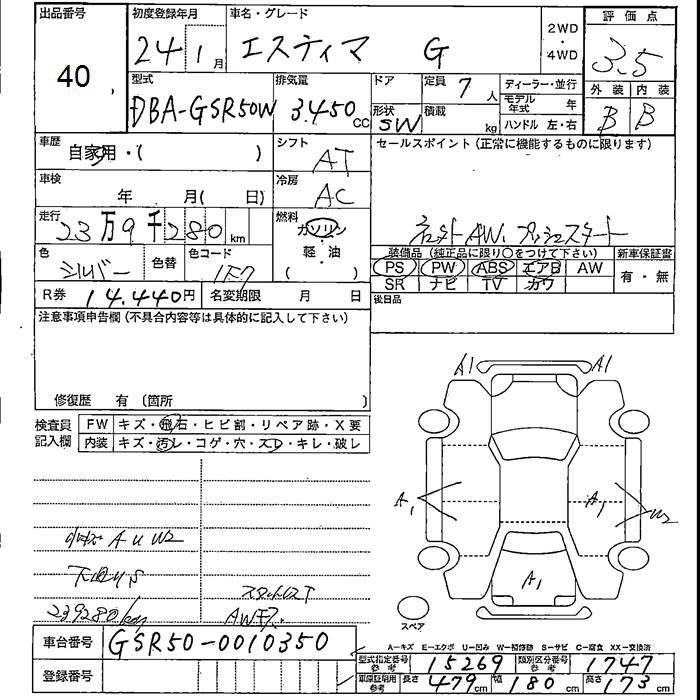 出品番号
40
初度登録年月
24 1月
車名・グレード
エスティマ G
2WD
・
4WD
評価点
3.5
外装 内装
B B
型式
DBA-GSR50W
排気量
3.450cc
ドア
形状
SW
定員 7人
積載 kg
ディーラー・並行
モデル年式 年
ハンドル 左・右
車歴
自家用・( )
シフト
AT
セールスポイント (正常に機能するものに限ります)
車検
年 月( 日)
冷房
AC
走行
23万9千280km
燃料
ガソリン
軽・油
( )
AW、プッシュスタート
色
シルバー
色替
色コード
1F7
装備品 (純正品に限り○をつけて下さい)
PS PW ABS エアB AW
SR ナビ TV カワ
新車保証書
有・無
R券 14.440円
名変期限 月 日
後日品
注意事項申告欄(不具合内容等は具体的に記入して下さい)
修復歴 有 (箇所 )
検査員
記入欄
FW キズ・飛石・ヒビ割・リペア跡・X要
内装 キズ・汚レ・コゲ・穴・スレ・キレ・破レ
A1 A1
A1 A1 W2
A1
スペア
小キズ A U W2
下回りS
239280km
スタッドレスT
車台番号
GSR50-0010350
登録番号
A−キズ E−エクボ U−凹み W−補修跡 S−サビ C−腐食 XX−交換済
型式指定番号 参考 15269
類別区分番号 参考 1747
車庫証明用 参考
長さ 479cm 幅 180cm 高さ 173cm